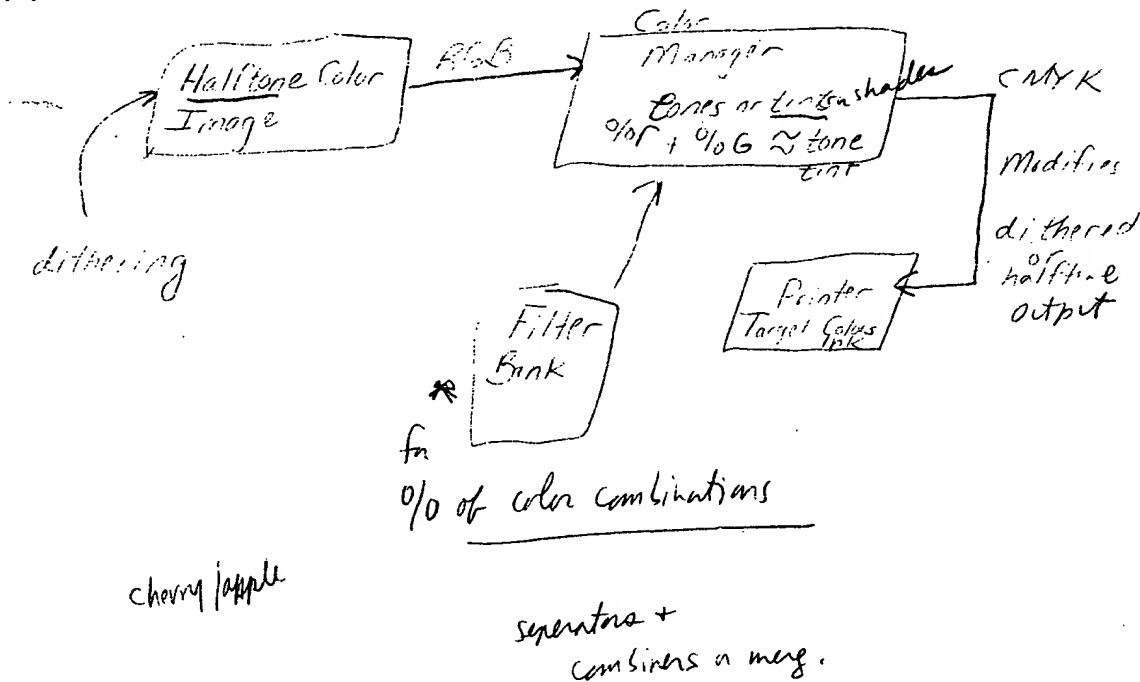 Halftone Color
Image
RGB
Color
Manager
tones or tints or shades
%r + %G ≈ tone
tint
CMYK
Modifies
dithered
or
halftone
output
dithering
Printer
Target Colors
Ink
Filter
Bank
*
for
% of color combinations
cherry/apple
seperators +
combiners or merg.